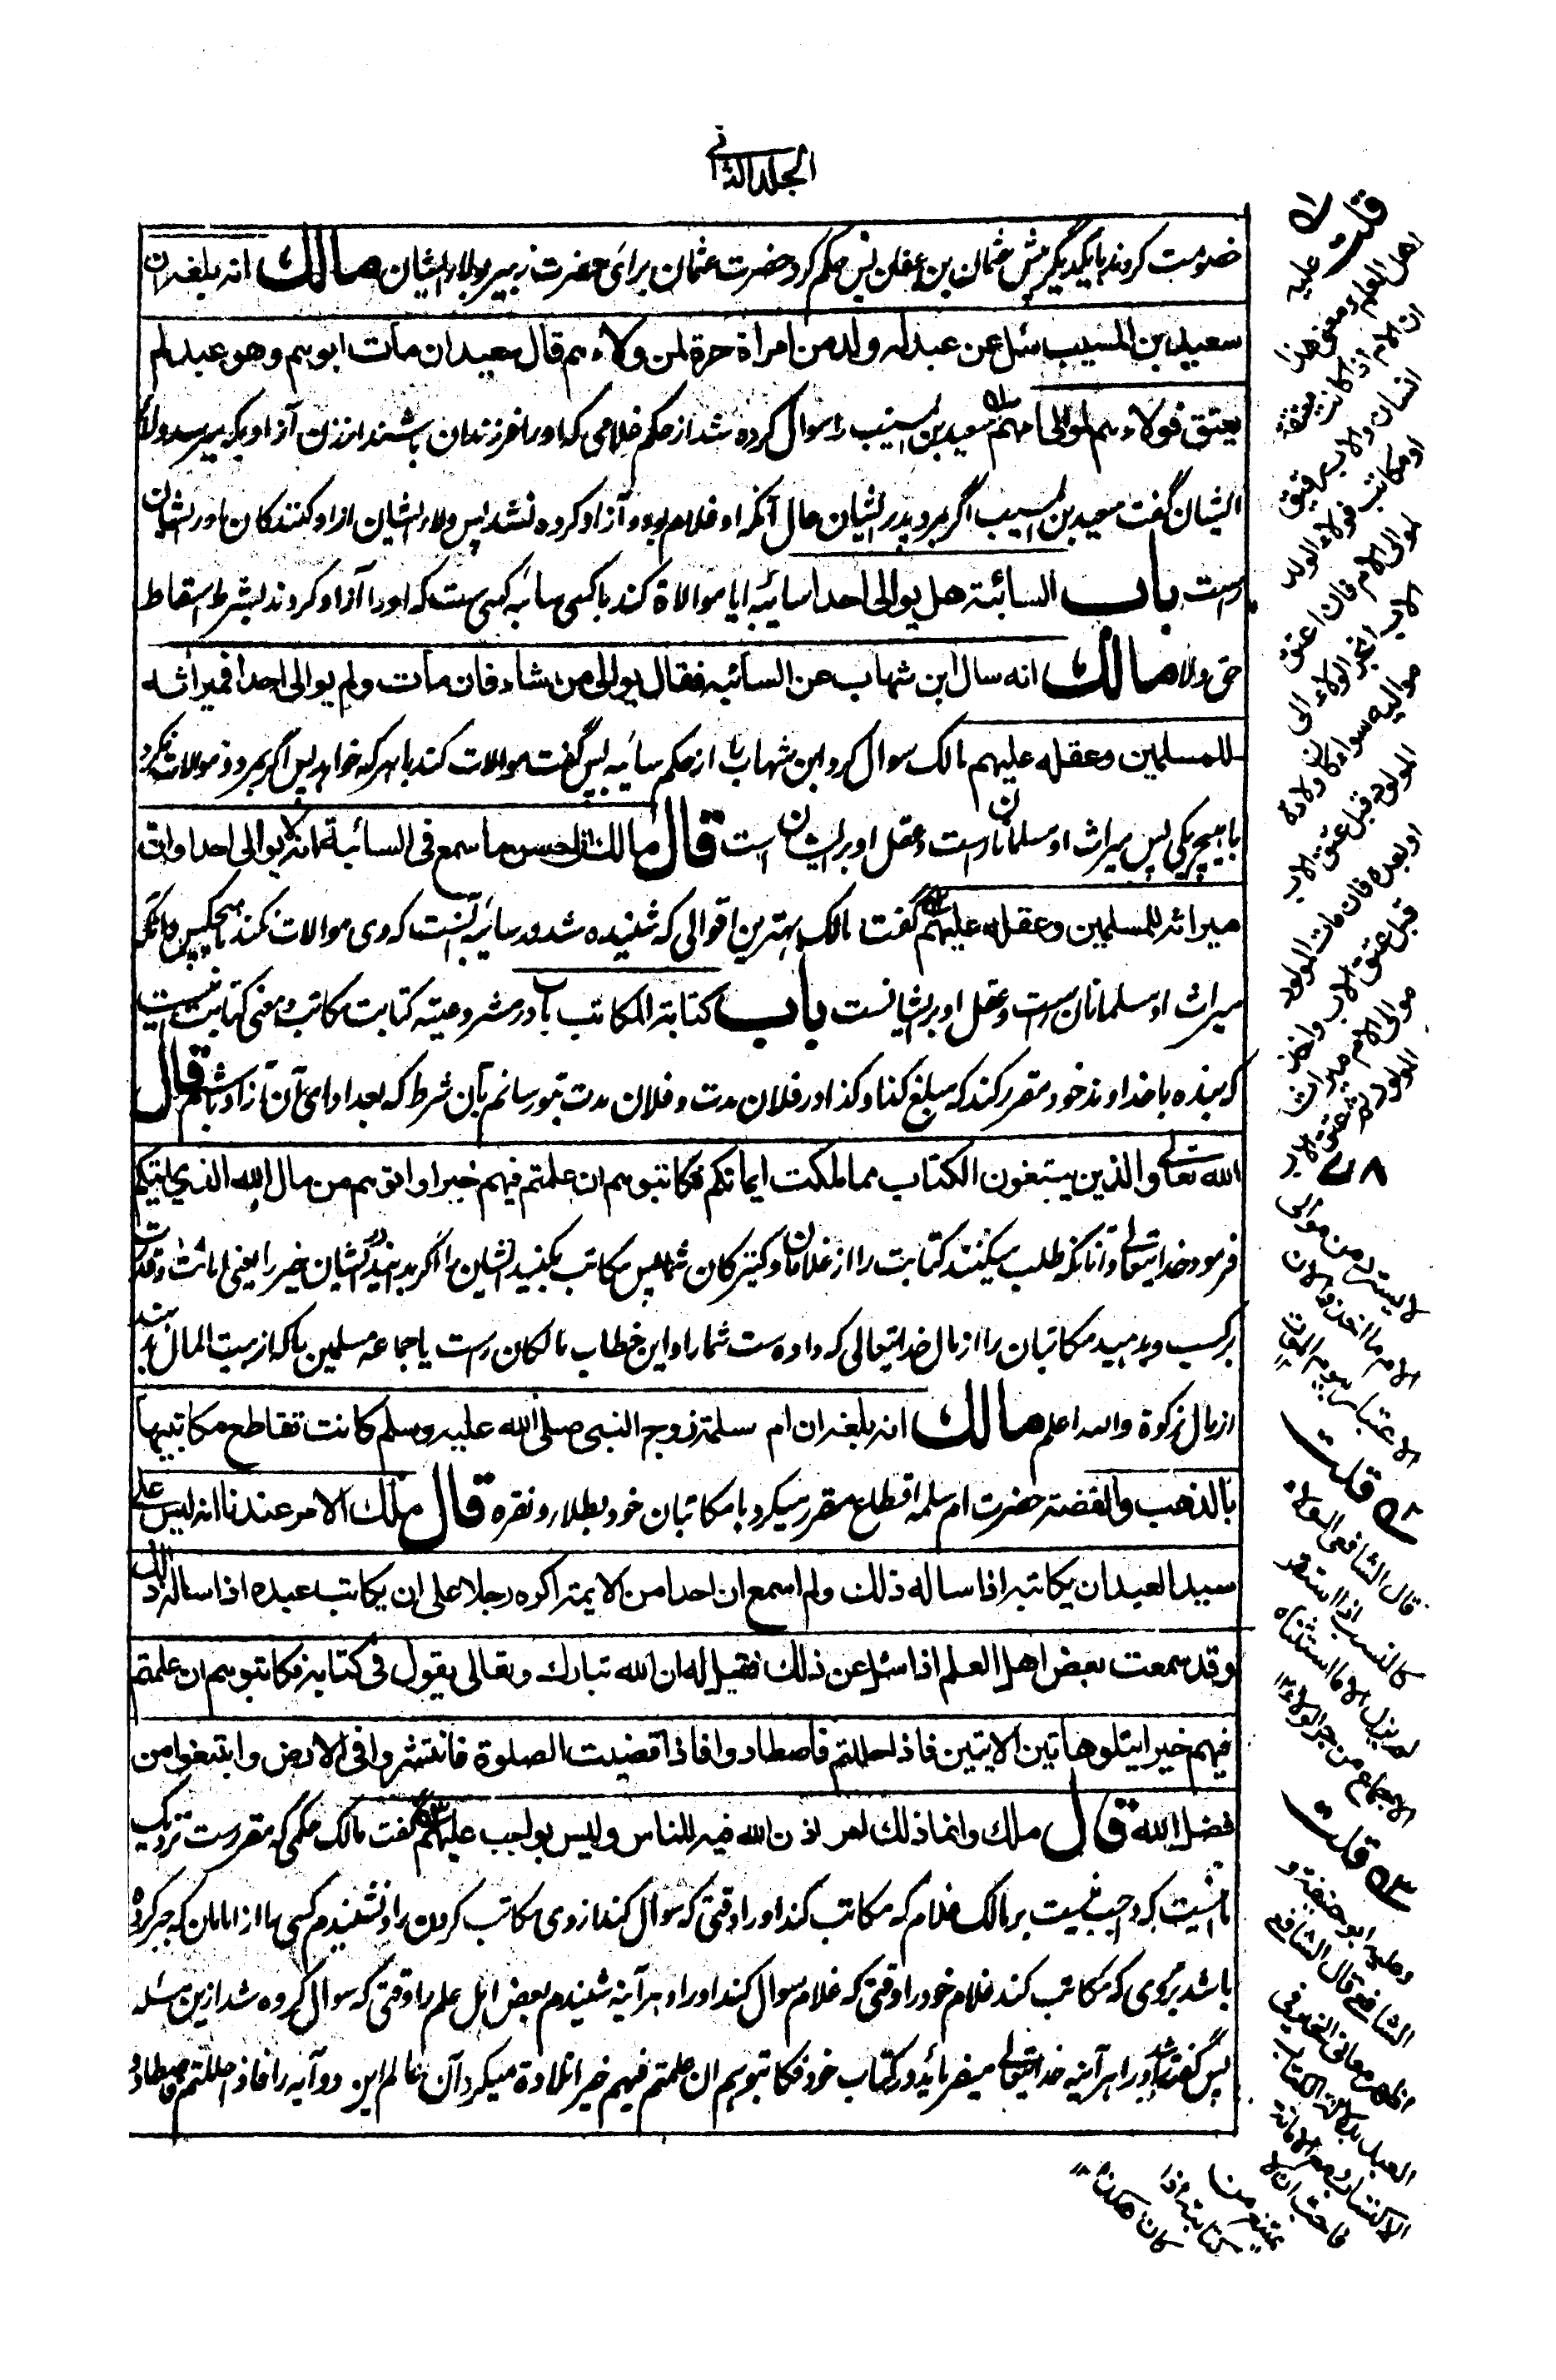 الجلد الثانی
خصومت کردند بایکدیگر پیش عثمان بن عفان پس حکم کرد حضرت عثمان برای حضرت زبیر بولاء ایشان مالك انه بلغه ان
سعید بن المسیب سئل عن عبد له ولد من امراة حرة لمن ولاءهم قال سعید ان مات ابوهم وهو عبد لم
یعتق فولاءهم لموالی امهم سعید بن مسیب را سوال کرده شد از حکم غلامی که اورا فرزندان باشند از زن آزاد بکه میرسد ولاء
ایشان گفت سعید بن المسیب اگر بمرد پدر ایشان حال آنکه او غلام بود و آزاد کرده نشد پس ولاء ایشان ازاد کنندکان مادر ایشان
راست باب السائبة هل یوالی احدا سائبه ایا موالاة کند با کسی سائبه کسی ست که اورا آزاد کردند بشرط اسقاط
حق ولا مالك انه سال ابن شهاب عن السائبه فقال یوالی من شاء فان مات ولم یوالی احدا فمیراثه
للمسلمین وعقله علیهم مالک سوال کرد ابن شهاب را از حکم سائبه پس گفت موالات کند با هر که خواهد پس اگر بمرد و موالات نکرد
با هیچ یکی پس میراث او مسلمانان راست و عقل او بر ایشان است قال مالك ان احسن ما سمع فی السائبة انه لا یوالی احدا وان
میراثه للمسلمین وعقله علیهم گفت مالک بهترین اقوالی که شنیده شد در سائبه آنست که وی موالات نکند با هیچکس و آنکه
میراث او مسلمانان راست و عقل او بر ایشانست باب کتابة المکاتب باب در مشروعیة کتابت مکاتب و معنی کتابت اینست
که بنده با خداوند خود مقرر کند که مبلغ کذا و کذا در فلان مدت و فلان مدت بتو رسانم بآن شرط که بعد ادای آن آزاد باشم قال
الله تعالی والذین یبتغون الکتاب مما ملکت ایمانکم فکاتبوهم ان علمتم فیهم خیرا واتوهم من مال الله الذی اتیکم
فرمود خدایتعالی و آنانکه طلب میکنند کتابت را از غلامان و کنیزکان شما پس مکاتب بکنید ایشان را اگر بدانید در ایشان خیر را یعنی امانت و قدرت
بر کسب و بدهید مکاتبان را از مال خدایتعالی که داده ست شما را و این خطاب مالکان راست یا جماعه مسلمین را که از بیت المال بدهند
از مال زکوة والله اعلم مالك انه بلغه ان ام سلمة زوج النبی صلی الله علیه وسلم کانت تقاطع مکاتبیها
بالذهب والفضة حضرت ام سلمه اقطاع مقرر میکرد با مکاتبان خود بطلا و نقره قال ملك الامر عندنا انه لیس علی
سید العبد ان یکاتبه اذا ساله ذلك ولم اسمع ان احدا من الایمة اکره رجلا علی ان یکاتب عبده اذا ساله ذلك
وقد سمعت بعض اهل العلم اذا سئل عن ذلك فقیل له ان الله تبارك وتعالی یقول فی کتابه فکاتبوهم ان علمتم
فیهم خیرا یتلو هاتین الایتین فاذا حللتم فاصطادوا فاذا قضیت الصلوة فانتشروا فی الارض وابتغوا من
فضل الله قال ملك وانما ذلك امر اذن الله فیه للناس ولیس بواجب علیهم گفت مالک حکمی که مقررست نزدیک
ما اینست که واجب نیست بر مالک غلام که مکاتب کند اورا وقتی که سوال کند از وی مکاتب کردن را و نشنیدم کسی را از امامان که جبر کرده
باشد بر مردی که مکاتب کند غلام خود را وقتی که غلام سوال کند اورا و هر آئینه شنیدم بعض اهل علم را وقتی که سوال کرده شد ازین مسئله
پس گفته شد اورا هر آئینه خدایتعالی میفرماید در کتاب خود فکاتبوهم ان علمتم فیهم خیرا تلاوة میکرد آن عالم این دو آیه را فاذا حللتم فاصطادوا
قلت علیه
اهل العلم ومعنی هذا
ان الام اذا کانت معتقة
انسان والاب رقیق
او مکاتب فولاء الولد
لموالی الام فان اعتق
الاب انجر الولاء الی
موالیه سواء کان ولادة
المولود قبل عتق الاب
او بعده فان مات المولود
قبل عتق الاب واخذ
موالی الام میراث
المولود ثم عتق الاب
لا یسترد من موالی
الام ما اخذوا لان
الاعتبار بیوم الموت
قلت
قال الشافعی الولاء
کالنسب اذا استقر
لم یزل الا ما استثناه
الاجماع من جر الولاء
قلت
وعلیه ابو حنیفة و
الشافعی قال الشافعی
اظهر معانی الخیر فی
العبد بدلالة الکتاب
الاکتساب مع الامانة
فاحب ان لا
یمتنع من
کتابته اذا
کان هکذا